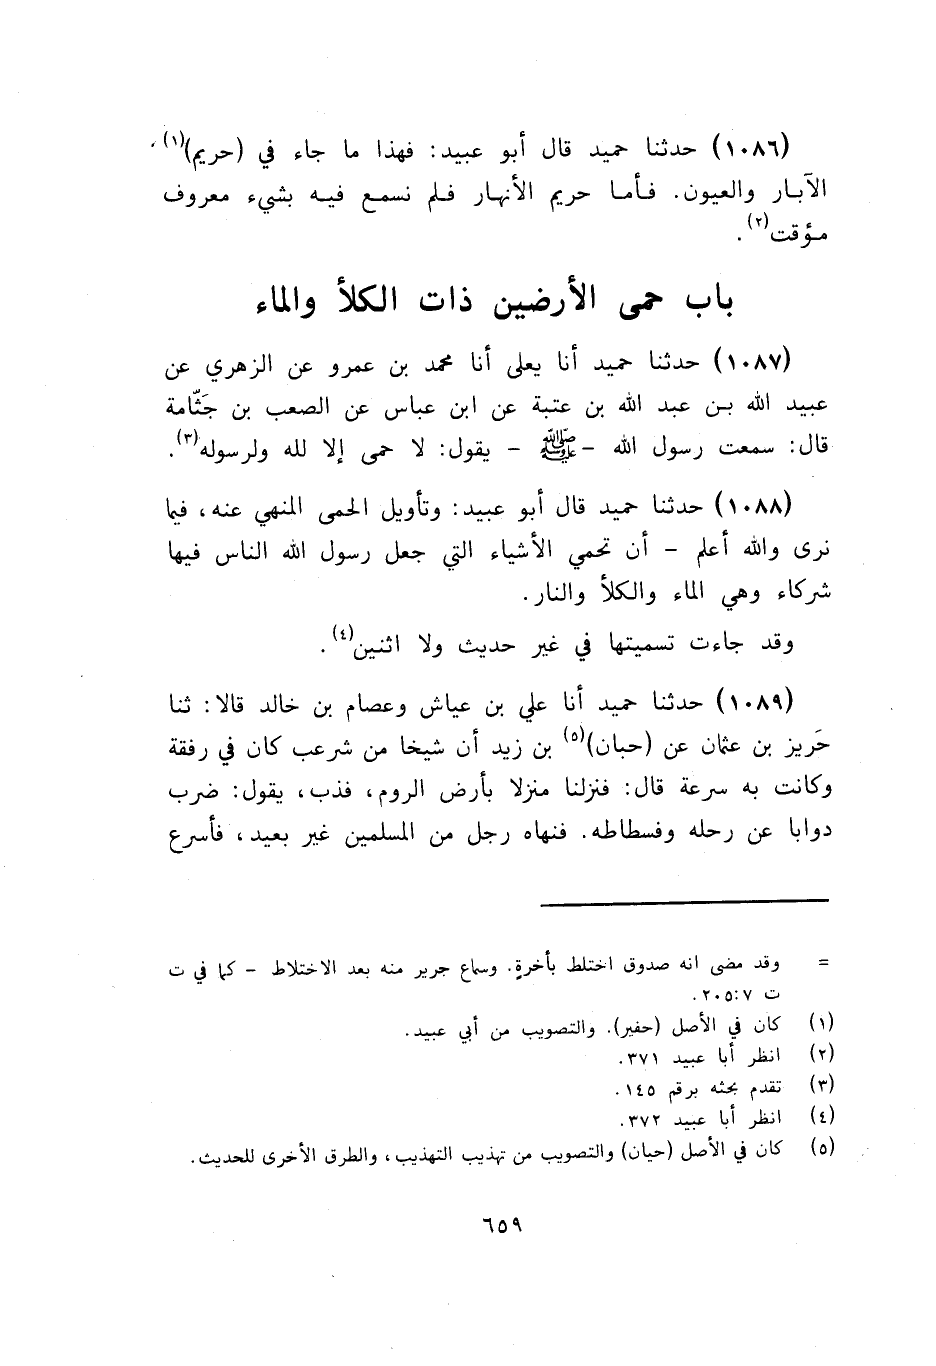 (١٠٨٦) حدثنا حميد قال أبو عبيد: فهذا ما جاء في (حريم)(١)،
الآبار والعيون. فأما حريم الأنهار فلم نسمع فيه بشيء معروف
مؤقت(٢).
باب حمى الأرضين ذات الكلأ والماء
(١٠٨٧) حدثنا حميد أنا يعلى أنا محمد بن عمرو عن الزهري عن
عبيد الله بن عبد الله بن عتبة عن ابن عباس عن الصعب بن جَثّامة
قال: سمعت رسول الله -ﷺ - يقول: لا حمى إلا لله ولرسوله(٣).
(١٠٨٨) حدثنا حميد قال أبو عبيد: وتأويل الحمى المنهي عنه، فيما
نرى والله أعلم - أن تحمي الأشياء التي جعل رسول الله الناس فيها
شركاء وهي الماء والكلأ والنار.
وقد جاءت تسميتها في غير حديث ولا اثنين(٤).
(١٠٨٩) حدثنا حميد أنا علي بن عياش وعصام بن خالد قالا: ثنا
حَريز بن عثمان عن (حبان)(٥) بن زيد أن شيخا من شرعب كان في رفقة
وكانت به سرعة قال: فنزلنا منزلا بأرض الروم، فذب، يقول: ضرب
دوابا عن رحله وفسطاطه. فنهاه رجل من المسلمين غير بعيد، فأسرع
= وقد مضى انه صدوق اختلط بأخرةٍ. وسماع جرير منه بعد الاختلاط - كما في ت
ت ٧:٢٠٥.
(١) كان في الأصل (حفير). والتصويب من أبي عبيد.
(٢) انظر أبا عبيد ٣٧١.
(٣) تقدم بحثه برقم ١٤٥.
(٤) انظر أبا عبيد ٣٧٢.
(٥) كان في الأصل (حيان) والتصويب من تهذيب التهذيب، والطرق الأخرى للحديث.
٦٥٩